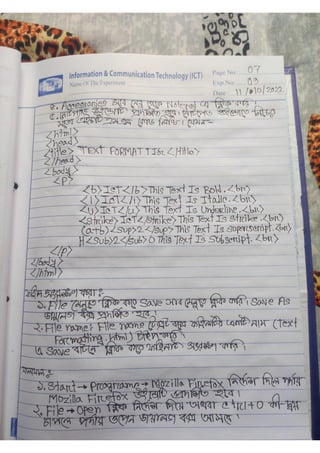 Information & Communication Technology (ICT)
Name Of The Experiment
Page No: 07
Exp.No: 03
Date: 11/10/2022
<html>
<head>
<title> TEXT FORMATTING </title>
</head>
<body>
<p>
<b> ICT </b> This Text Is Bold. <br>
<i> ICT </i> This Text Is Italic. <br>
<u> ICT </u> This Text Is Underline. <br>
<strike> ICT </strike> This Text Is Strike. <br>
(a+b)<sup>2</sup> This Text Is Superscript. <br>
H<sub>2</sub>O This Text Is Subscript. <br>
</p>
</body>
</html>
ফাইল সংরক্ষণ করা:
১. File মেনুতে ক্লিক করে Save As মেনুতে ক্লিক করি। Save As
ডায়ালগ বক্স প্রদর্শিত হবে।
২. File name: File name টেক্সট বক্সে ফাইলটির একটি নাম (Text
Formatting.html) টাইপ করি।
৩. Save বাটনে ক্লিক করে ফাইলটি সংরক্ষণ করি।
ফলাফল:
১. Start → Programme → Mozilla Firefox নির্দেশ দিলে পর্দায়
Mozilla Firefox উইন্ডোটি প্রদর্শিত হবে।
২. File → Open ক্লিক নির্দেশ দিয়ে অথবা Ctrl+O কী-দ্বয়
চাপলে পর্দায় ওপেন ডায়ালগ বক্স আসবে।